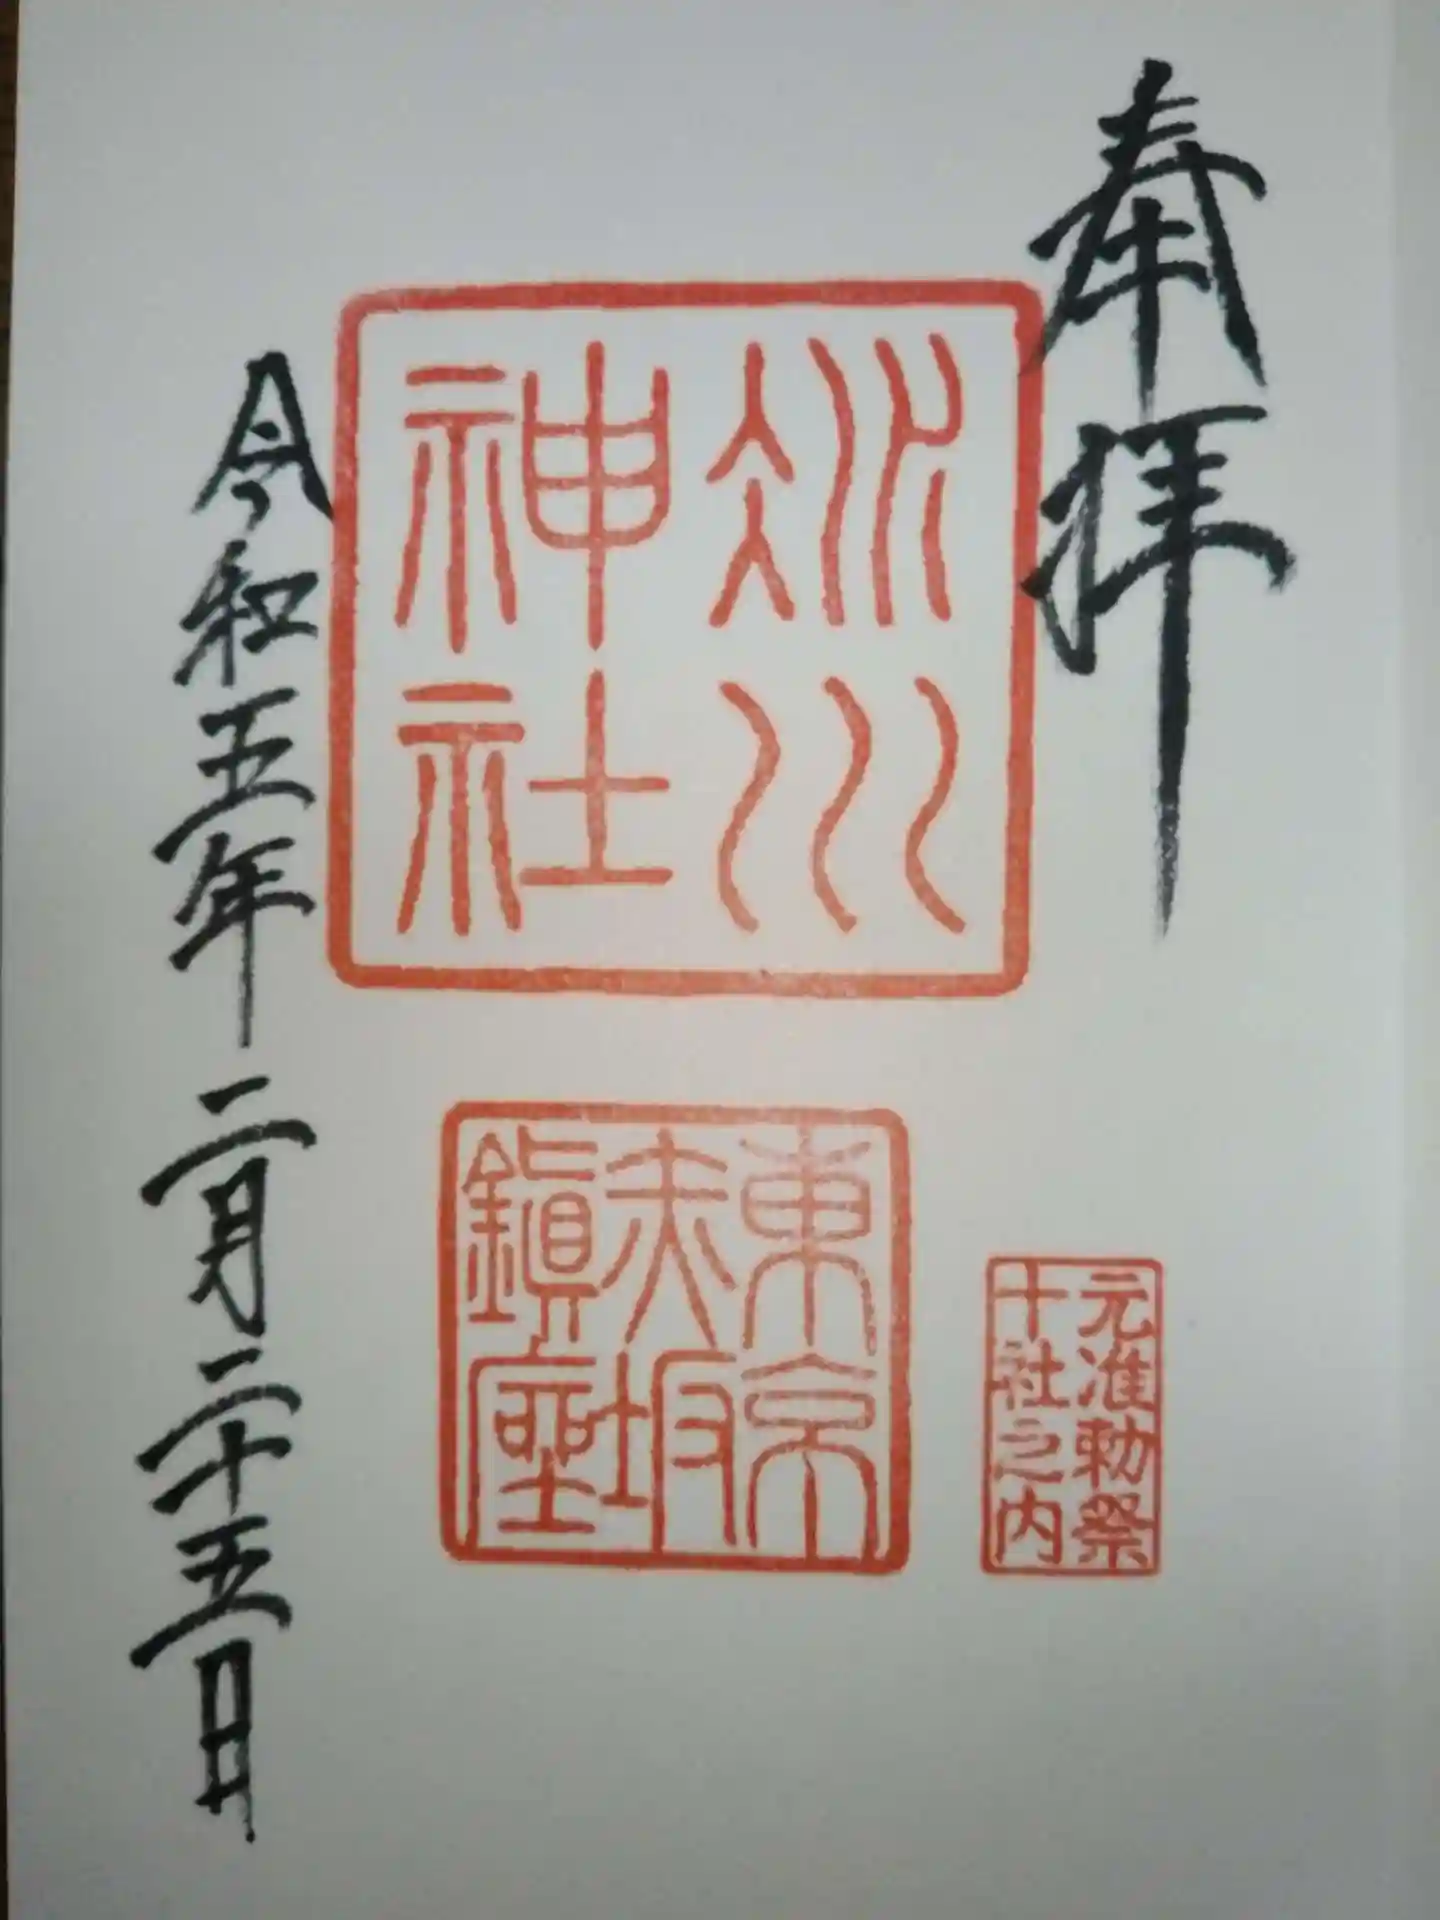 奉拝
氷川
神社
東京
赤坂
鎮座
元准勅祭
十社之内
令和五年二月二十五日